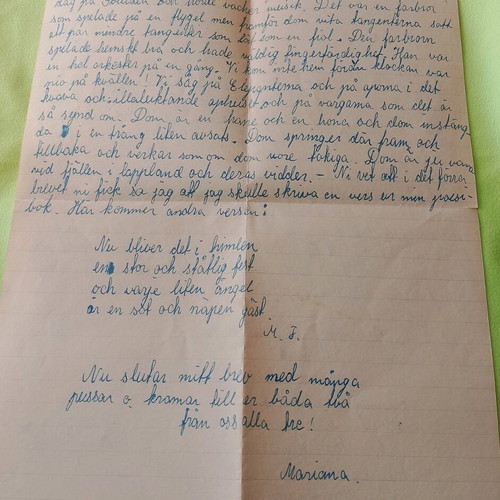 dag på Solliden där hörde vacker musik. Det var en farbror
som spelade på en flygel men framför dom vita tangenterna satt
ett par mindre tangenter som lät som en fiol. Den farbrorn
spelade hemskt bra och hade väldig fingerfärdighet. Han var
en hel orkester på en gång. Vi kom inte hem förän klockan var
nio på kvällen! Vi såg på Elefanterna och på aporna i det
kvava och illaluktande aphuset och på vargarna som det är
så synd om. Dom är en hane och en hona och dom är instäng-
da i en trång liten avsats. Dom springer där fram och
tillbaka och verkar som om dom vore tokiga. Dom är ju vana
vid fjällen i lappland och deras vidder. - Ni vet att i det förra
brevet ni fick sa jag att jag skulle skriva en vers ur min poesi-
bok. Här kommer andra versen:
Nu bliver det i himlen
en stor och ståtlig fest
och varje liten ängel
är en söt och näpen gäst.
M. F.
Nu slutar mitt brev med många
pussar o. kramar till er båda två
från oss alla tre!
Mariana.